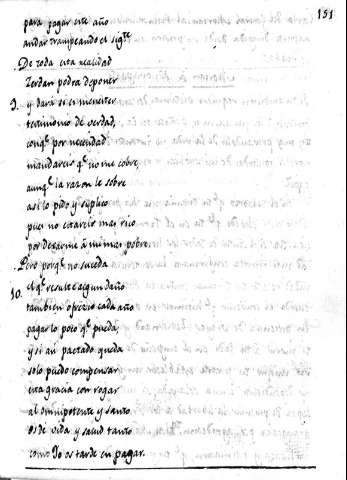 151
para pagar este año
andar trampeando el sigte
De toda esta realidad
Zerdan podra deponer
9. y dara si es menester
testimonio de verdad,
conqe por necedad
mandareis qe no me cobre,
aunqe la razon le sobre
asi lo pido y suplico
pues no estareis mas rico
por dexarme à mi mas pobre.
Pero porqe no suceda
10. el qe resulte algun daño
tambien ofrezco cada año
pagar lo poco qe pueda,
y si asi pactado queda
solo puedo compensar
esta gracia con rogar
al omnipotente y santo
os de vida y salud tanto
como Yo os tarde en pagar.